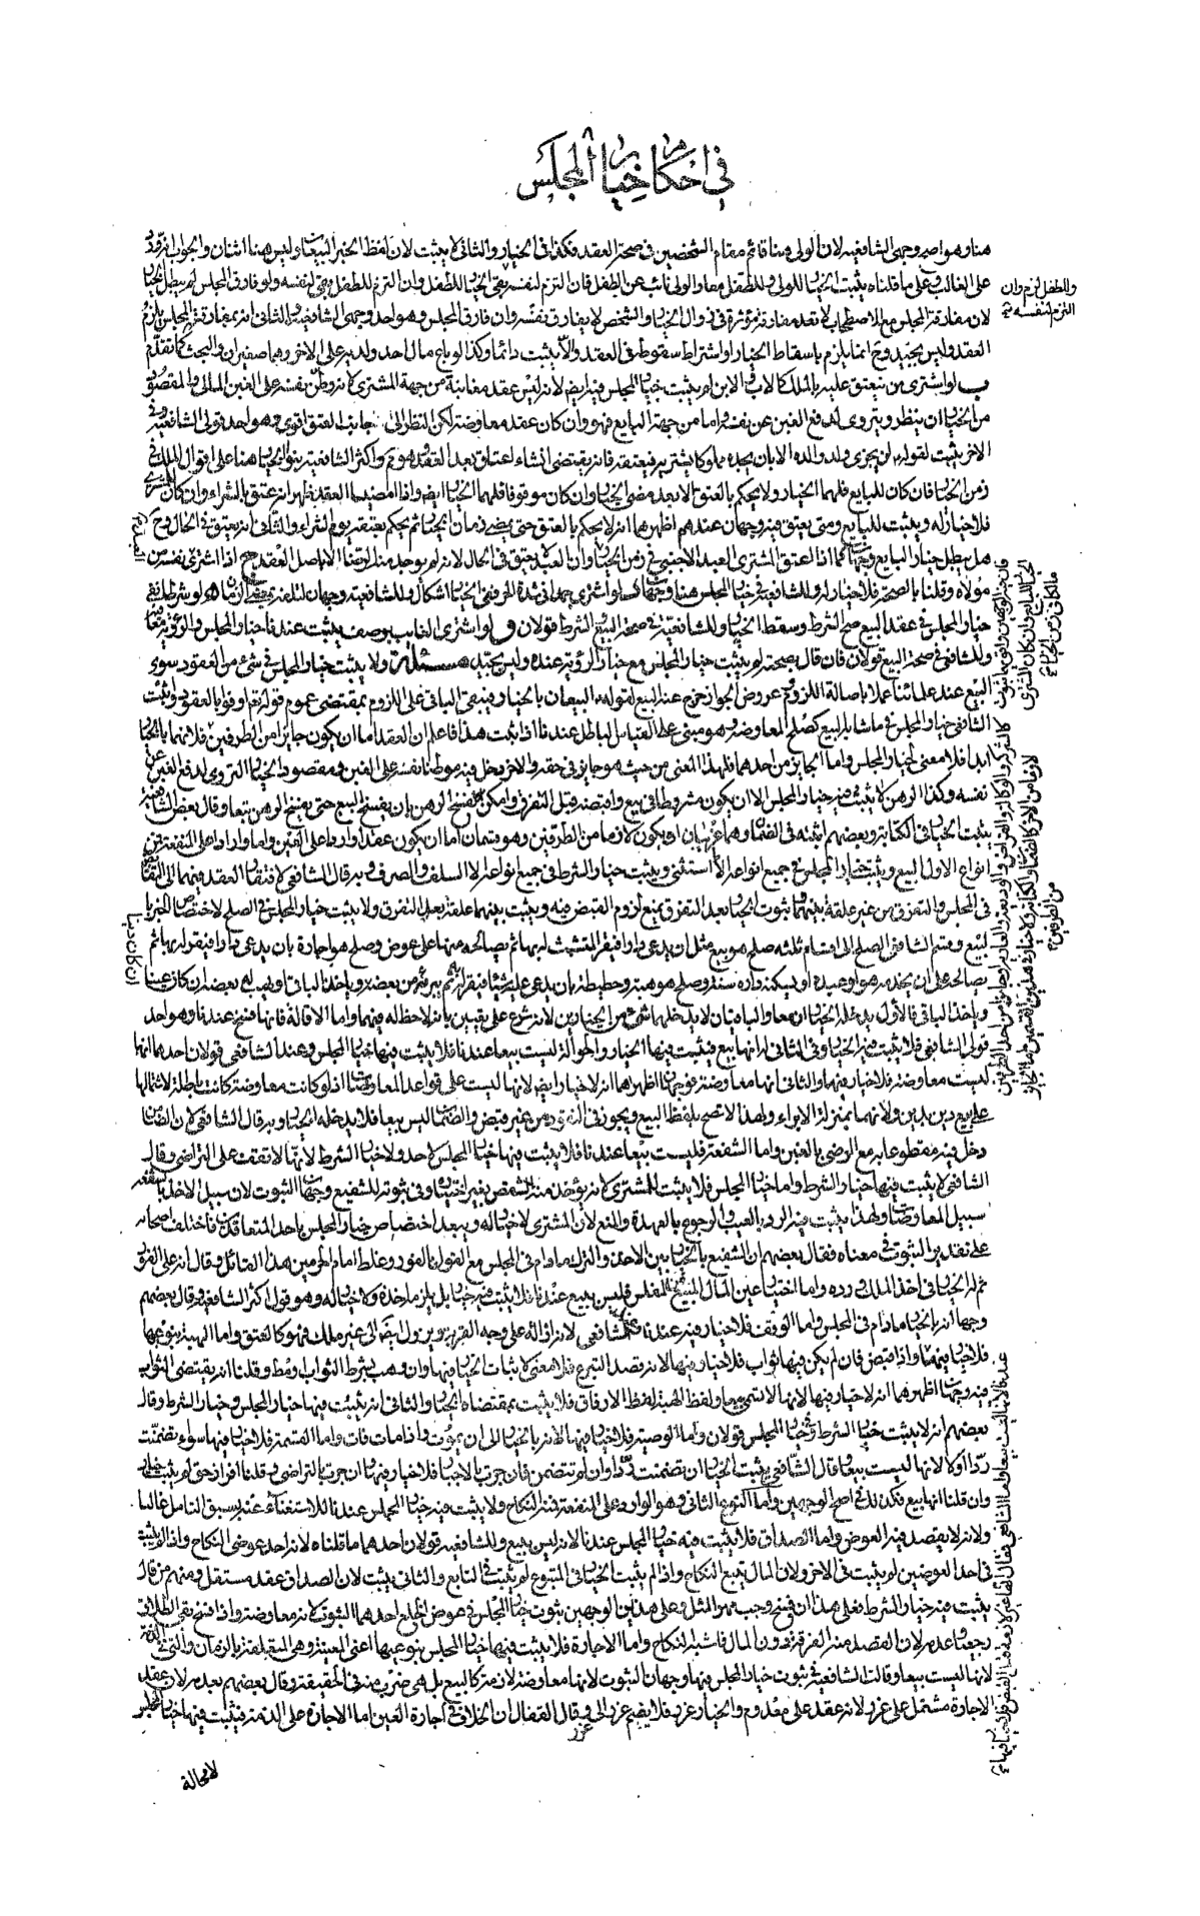 في احكام خيار المجلس
هنا وهو اصح وجهي الشافعية لان الولي هنا قائم مقام الشخصين في صحة العقد فكذا في الخيار والثاني لا يثبت لان لفظ الخبر البيعان وليس هنا اثنان والجواب انه ورد
على الغالب وعلى ما قلناه يثبت الخيار للولي وللطفل معا والولي نائب عن الطفل فان التزم لنفسه بقي الخيار للطفل وان التزم للطفل بقي لنفسه ولو فارق المجلس لم يبطل الخيار
لان مفارقة المجلس مع الاصطحاب لا تعد مفارقة مؤثرة في زوال الخيار والشخص لا يفارق نفسه وان فارق المجلس وهو احد وجهي الشافعية والثاني انه بمفارقة المجلس يلزم
العقد وليس بجيد وح انما يلزم باسقاط الخيار او اشتراط سقوطه في العقد والا يثبت دائما وكذا لو باع مال احد ولديه على الاخر وهما صغيران والبحث كما تقدم
ب لو اشترى من ينعتق عليه بالملك كالاب والابن لم يثبت خيار المجلس فيه ايضا لانه ليس عقد مغابنة من جهة المشتري لانه وطن نفسه على الغبن المالي والمقصود
من الخيار ان ينظر ويتروى لدفع الغبن عن نفسه واما من جهة البايع فهو وان كان عقد معاوضة لكن النظر الى جانب العتق اقوى وهو احد قولي الشافعية وفي
الاخر يثبت لقوله لن يجزي ولد والده الا بان يجده مملوكا يشتريه فيعتقه فانه يقتضي انشاء اعتاق بعد العقد وهو مم واكثر الشافعية بنوا الخيار هنا على اقوال الملك في
زمن الخيار فان كان للبايع فلهما الخيار ولا يحكم بالعتق الا بعد مضي الخيار وان كان موقوفا فلهما الخيار ايضا واذا امضيا العقد ظهر انه عتق بالشراء وان كان للمشتري
فلا خيار له ويثبت للبايع ومتى يعتق فيه وجهان عندهم اظهرهما انه لا يحكم بالعتق حتى يمضي زمان الخيار ثم يحكم بعتقه يوم الشراء والثاني انه يعتق في الحال وح
هل يبطل خيار البايع وجهان كما اذا اعتق المشتري العبد الاجنبي في زمن الخيار
مولاه وقلنا بالصحة فلا خيار له وللشافعية في خيار المجلس هنا وجهان
خيار المجلس في عقد البيع صح الشرط وسقط الخيار وللشافعية في صحة البيع والشرط قولان ولو اشترى الغايب بوصف يثبت عندنا خيار المجلس والرؤية معا
وللشافعي في صحة البيع قولان فان قال بصحته لم يثبت خيار المجلس مع خيار الرؤية عنده وليس بجيد مسئلة ولا يثبت خيار المجلس في شيء من العقود سوى
البيع عند علمائنا عملا باصالة اللزوم وعروض الجواز خرج عنه البيع لقوله البيعان بالخيار فيبقى الباقي على اللزوم بمقتضى عموم قوله تع اوفوا بالعقود واثبت
الشافعي خيار المجلس في ما شابه البيع كصلح المعاوضة وهو مبني على القياس الباطل عندنا اذا ثبت هذا فاعلم ان العقد اما ان يكون جايزا من الطرفين
ابدا فلا معنى لخيار المجلس واما الجايز من احدهما فلهذا المعنى من حيث هو جايز في حقه والاخر دخل فيه موطنا نفسه على الغبن ومقصود الخيار التروي لدفع الغبن عن
نفسه وكذا الرهن لا يثبت فيه خيار المجلس الا ان يكون مشروطا في بيع واقتضه قبل التفرق وامكن فسخ الرهن بان يفسخ البيع حتى ينفسخ الرهن تبعا وقال بعض الشافعية
يثبت الخيار في الكتابة وبعضهم اثبته في الضمان وهما غريبان او يكون لازما من الطرفين وهو قسمان اما ان يكون عقدا واردا على العين واما واردا على المنفعة فمن
انواع الاول البيع ويثبت خيار المجلس في جميع انواعه الا ما استثني ويثبت خيار الشرط في جميع انواعه الا السلف والصرف وبه قال الشافعي لافتقار العقد فيهما الى التقابض
في المجلس والتفرق من غير علقة بينهما وثبوت الخيار بعد التفرق يمنع لزوم القبض فيه ويثبت بينهما علقة بعد التفرق ولا يثبت خيار المجلس في الصلح لاختصاص الخبر بالبيع
وقسم الشافعي الصلح الى اقسام ثلثة صلح هو بيع مثل ان يدعي دارا فيقر المتشبث له بها ثم يصالحه منها على عوض وصلح هو اجارة بان يدعي دارا فيقر له بها ثم
يصالحه على ان يخدمه هو او عبده او يسكنه داره سنة وصلح هو هبة وحطيطة بان يدعي عليه شيئا فيقر له به ثم يبرئه من بعضه وياخذ الباقي او يهب له بعضه ان كان عينا
وياخذ الباقي فالاول يدخله الخيار ان معا والباقيان لا يدخلهما شيء من الخيارين لانه شرع على يقين بانه لا حظ له فيهما واما الاقالة فانها فسخ عندنا وهو احد
قولي الشافعي فلا يثبت فيه الخيار وفي الثاني له انها بيع فيثبت فيها الخيار والحوالة ليست بيعا عندنا فلا يثبت فيها خيار المجلس وعند الشافعي قولان احدهما انها
ليست معاوضة فلا خيار فيها والثاني انها معاوضة فوجهان اظهرهما انه لا خيار ايضا لانها ليست على قواعد المعاوضات اذ لو كانت معاوضة كانت باطلة لاشتمالها
على بيع دين بدين ولانها بمنزلة الابراء ولهذا لا تصح بلفظ البيع ويجوز في النقود من غير قبض والضمان ليس بيعا فلا يدخله الخيار وبه قال الشافعي لان الضامن
دخل فيه مقطوعا به مع الرضى بالغبن واما الشفعة فليست بيعا عندنا فلا يثبت فيها خيار المجلس لاحد ولا خيار الشرط لانها لا تقف على التراضي وقال
الشافعي لا يثبت فيها خيار الشرط واما خيار المجلس فلا يثبت للمشتري لانه يؤخذ منه الشقص بغير اختياره وفي ثبوته للشفيع وجهان الثبوت لان سبيل الاخذ بالشفعة
سبيل المعاوضات ولهذا يثبت فيه الرد بالعيب والرجوع بالعهدة والمنع لان المشتري لا خيار له ويبعد اختصاص خيار المجلس باحد المتعاقدين فاختلف اصحابه
على تقدير الثبوت في معناه فقال بعضهم ان الشفيع بالخيار بين الاخذ والترك مادام في المجلس مع القول بالفور وغلط امام الحرمين هذا القائل وقال انه على الفور
ثم له الخيار في اخذ الملك ورده واما اختيار عين المال المبيع للمفلس فليس ببيع عندنا فلا يثبت فيه خيار بل يلزم باخذه ولا خيار له وهو قول اكثر الشافعية وقال بعضهم
وجها انه بالخيار مادام في المجلس واما الوقف فلا خيار فيه عندنا وعند الشافعي لانه ازالة على وجه القربة ويزول ايضا الى غير ملك فهو كالعتق واما الهبة بنوعيها
فلا خيار فيها واذا قبض فان لم يكن فيها ثواب فلا خيار فيها لانه قصد التبرع فلا معنى لاثبات الخيار فيها وان وهب بشرط الثواب او مط وقلنا انه يقتضي الثواب
فيه وجهان اظهرهما انه لا خيار فيها لانها لا تسمى بيعا ولفظ الهبة لفظ الارفاق فلا يثبت بمقتضاه الخيار والثاني انه يثبت فيها خيار المجلس وخيار الشرط وقال
بعضهم انه لا يثبت خيار الشرط وفي خيار المجلس قولان واما الوصية فلا خيار فيها لانه بالخيار الى ان يموت واذا مات فات واما القسمة فلا خيار فيها سواء تضمنت
ردا او لا لانها ليست بيعا وقال الشافعي يثبت الخيار ان تضمنت ردا وان لم تتضمن فان جرت بالاجبار فلا خيار فيها وان جرت بالتراضي وقلنا افراز حق لم يثبت خيار
وان قلنا انها بيع فكذلك في اصح الوجهين واما النوع الثاني وهو الوارد على المنفعة فمنه النكاح ولا يثبت فيه خيار المجلس عندنا للاستغناء عنه بسبق التامل غالبا
ولانه لا يقصد فيه العوض واما الصداق فلا يثبت فيه خيار المجلس عندنا لانه ليس ببيع وللشافعية قولان احدهما ما قلناه لانه احد عوضي النكاح واذا لم يثبت
في احد العوضين لم يثبت في الاخر ولان المال يتبع النكاح واذا لم يثبت الخيار في المتبوع لم يثبت في التابع والثاني يثبت لان الصداق عقد مستقل ومنهم من قال
يثبت فيه خيار الشرط فعلى هذا ان فسخ وجب مهر المثل وعلى هذين الوجهين ثبوت خيار المجلس في عوض الخلع احدهما الثبوت لانه معاوضة واذا فسخ بقي الطلاق
رجعيا وعدمه لان القصد منه الفرقة دون المال فاشبه النكاح واما الاجارة فلا يثبت فيها خيار المجلس بنوعيها اعني المعينة وهي المتعلقة بالزمان والتي في الذمة
لانها ليست بيعا وقالت الشافعية في ثبوت خيار المجلس فيها وجهان الثبوت لانها معاوضة لازمة كالبيع بل هي ضرب منه في الحقيقة وقال بعضهم بعدمه لان عقد
الاجارة مشتمل على غرر لانه عقد على معدوم والخيار غرر فلا يضم غرر الى غرر وقال القفال ان الخلاف في اجارة العين اما الاجارة على الذمة فيثبت فيها خيار المجلس
لا محالة
وللطفل لزم وان
التزم لنفسه
ان كانت دينا
من الطرفين